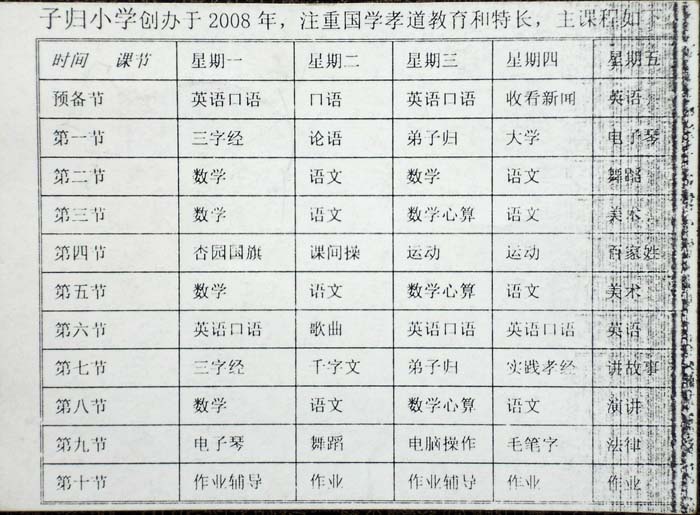 子归小学创办于 2008 年，注重国学孝道教育和特长，主课程如下
时间 课节 星期一 星期二 星期三 星期四 星期五
预备节 英语口语 口语 英语口语 收看新闻 英语
第一节 三字经 论语 弟子归 大学 电子琴
第二节 数学 语文 数学 语文 舞蹈
第三节 数学 语文 数学心算 语文 美术
第四节 杏园国旗 课间操 运动 运动 百家姓
第五节 数学 语文 数学心算 语文 美术
第六节 英语口语 歌曲 英语口语 英语口语 英语
第七节 三字经 千字文 弟子归 实践孝经 讲故事
第八节 数学 语文 数学心算 语文 演讲
第九节 电子琴 舞蹈 电脑操作 毛笔字 法律
第十节 作业辅导 作业 作业辅导 作业 作业